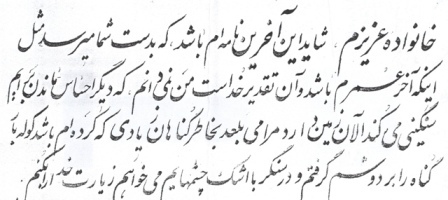 خانواده عزیزم، شاید این آخرین نامه ام باشد، که بدست شما میرسد مثل
اینکه آخر عمرم باشد و آن تقدیر خداست من نمی دانم، که دیگر احساس ماندن برایم
سنگینی می کند الآن زمین دارد مرا می بلعد بخاطر گناهان زیادی که کرده ام باشد کوله بار
گناه را بر دوشم گرفتم و در سنگر با اشک چشمهایم می خواهم زیارت خدا را کنم.